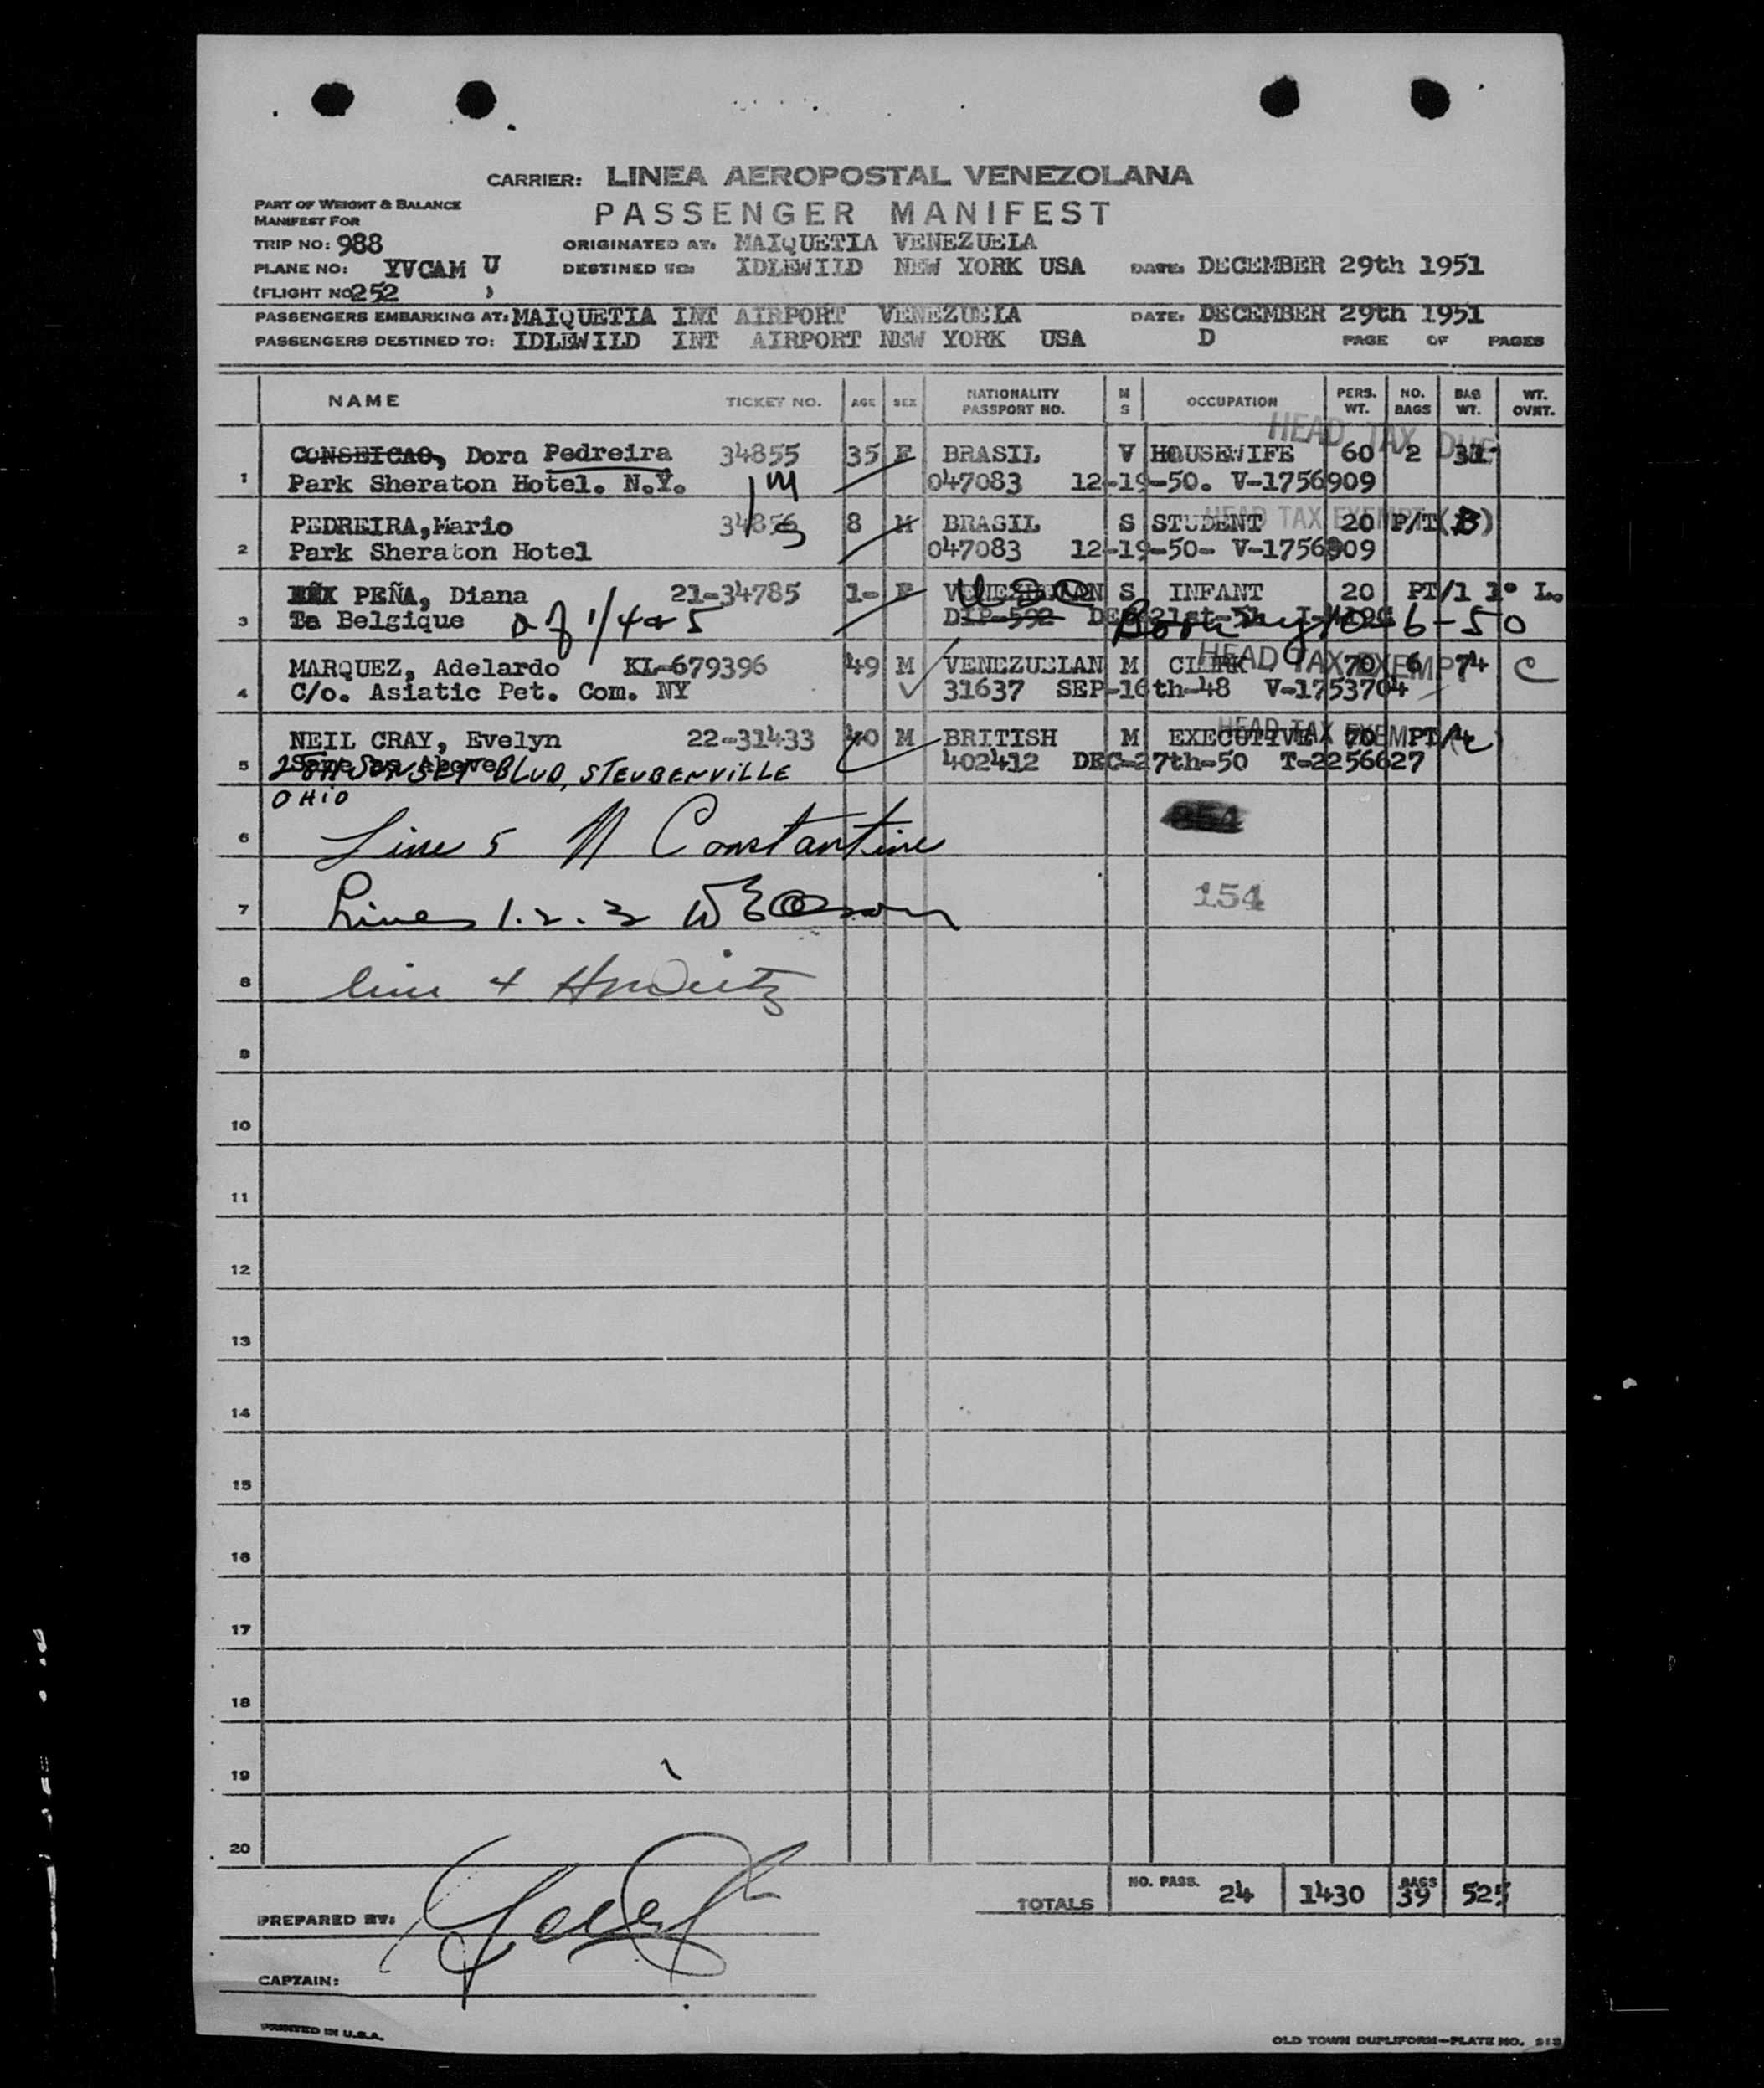 CARRIER: LINEA AEROPOSTAL VENEZOLANA
PART OF WEIGHT & BALANCE
MANIFEST FOR
PASSENGER MANIFEST
TRIP NO: 988 ORIGINATED AT: MAIQUETIA VENEZUELA
PLANE NO: YVCAM U DESTINED TO: IDLEWILD NEW YORK USA DATE: DECEMBER 29th 1951
(FLIGHT NO 252 )
PASSENGERS EMBARKING AT: MAIQUETIA INT AIRPORT VENEZUELA DATE: DECEMBER 29th 1951
PASSENGERS DESTINED TO: IDLEWILD INT AIRPORT NEW YORK USA D PAGE OF PAGES
NAME TICKET NO. AGE SEX NATIONALITY PASSPORT NO. M S OCCUPATION PERS. WT. NO. BAGS BAG WT. WT. OVNT.
HEAD TAX DUE
CONSEICAO, Dora Pedreira 34855 35 F BRASIL V HOUSEWIFE 60 2 31
1 Park Sheraton Hotel. N.Y. 047083 12-19-50. V-1756909
HEAD TAX EXEMPT
PEDREIRA, Mario 34856 8 M BRASIL S STUDENT 20 P/T (B)
2 Park Sheraton Hotel 047083 12-19-50- V-1756909
PEÑA, Diana 21-34785 1- F VENEZUELAN USC S INFANT 20 PT/1
3 Belgique DIP-592 Born 6-50
HEAD TAX EXEMPT
MARQUEZ, Adelardo KL-679396 49 M VENEZUELAN M CLERK 70 6 74 C
4 C/o. Asiatic Pet. Com. NY 31637 SEP-16th-48 V-1753704
HEAD TAX EXEMPT
NEIL CRAY, Evelyn 22-31433 40 M BRITISH M EXECUTIVE 70 PT/4
5 Same as Above BLVD, STEUBENVILLE 402412 DEC-27th-50 T-2256627
OHIO
6 Line 5 N Constantine
7 Lines 1.2.3 154
8 line 4 Hurwitz
9
10
11
12
13
14
15
16
17
18
19
20
TOTALS NO. PASS. 24 1430 BAGS 39 525
PREPARED BY:
CAPTAIN:
PRINTED IN U.S.A.
OLD TOWN DUPLIFORM—PLATE NO.